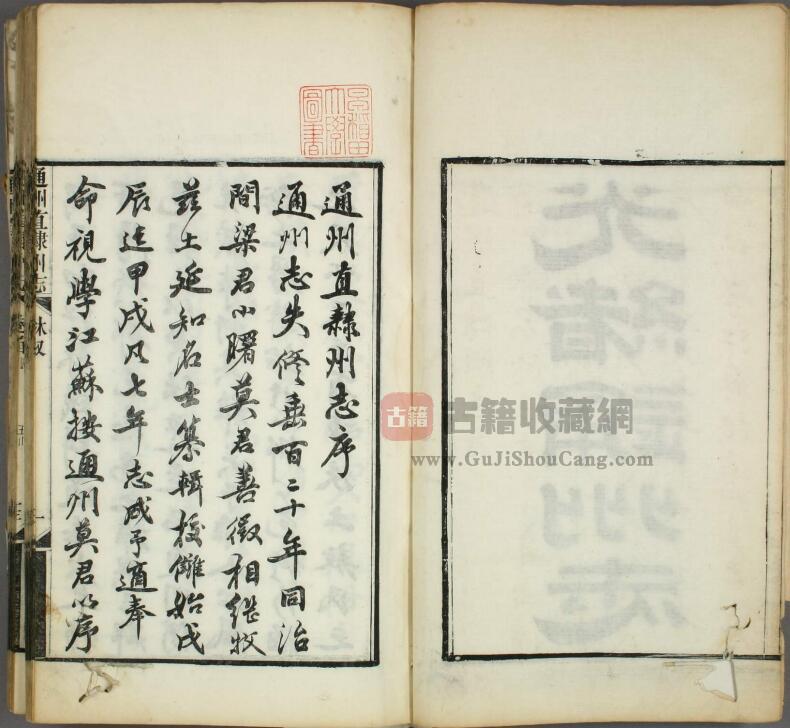 早稻田
大學
圖書
通州直隸州志序
通州志失修垂百二十年同治
間梁君小曙莫君善徵相繼牧
茲土延知名士纂輯校讎始戊
辰迄甲戌凡七年志成予適奉
命視學江蘇按通州莫君以序
通州直隸州志
林敘
一
古籍
古籍收藏網
www.GuJiShouCang.com